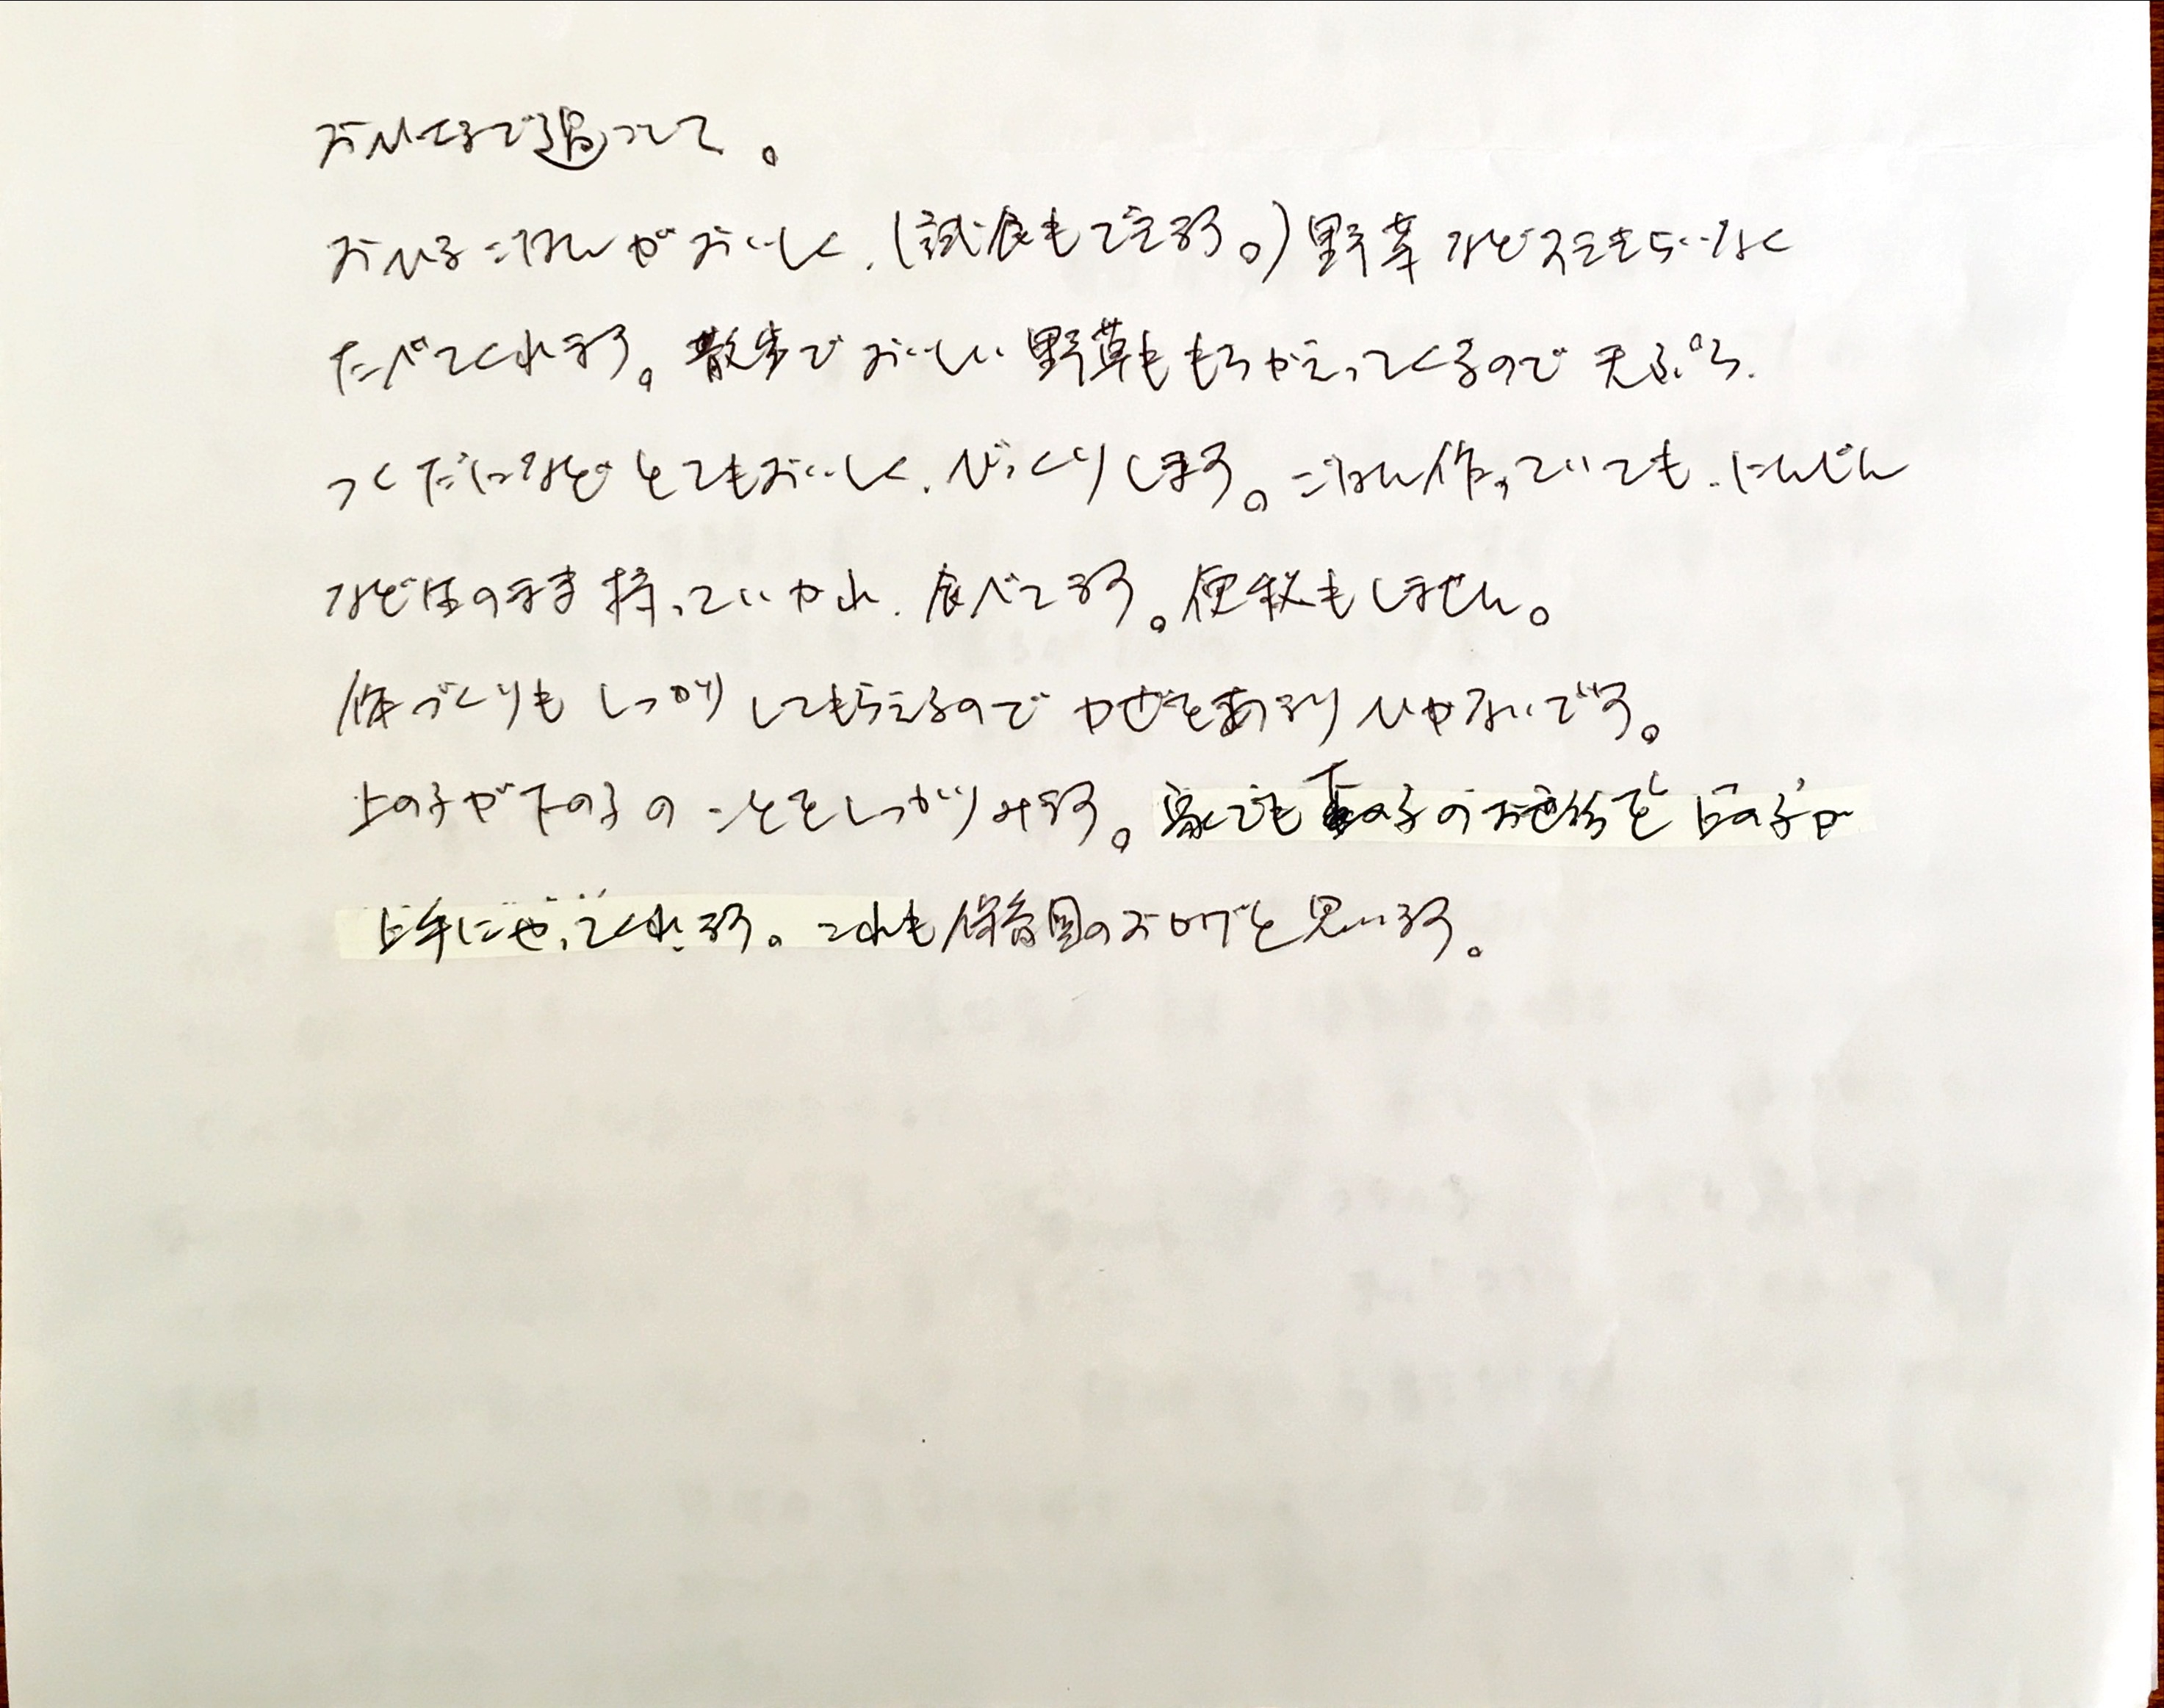 おひさまで過ごして。
おひるごはんがおいしく、(試食もできます。)野菜などすききらいなく
たべてくれます。散歩でおいしい野草ももちかえってくるので天ぷら、
つくだになどとてもおいしく、びっくりします。ごはん作っていても、にんじん
など生のまま持っていかれ、食べてます。便秘もしません。
体づくりもしっかりしてもらえるのでかぜをあまりひかないです。
上の子が下の子のことをしっかりみます。家でも下の子のお世話を上の子が
上手にやってくれます。これも保育園のおかげと思います。